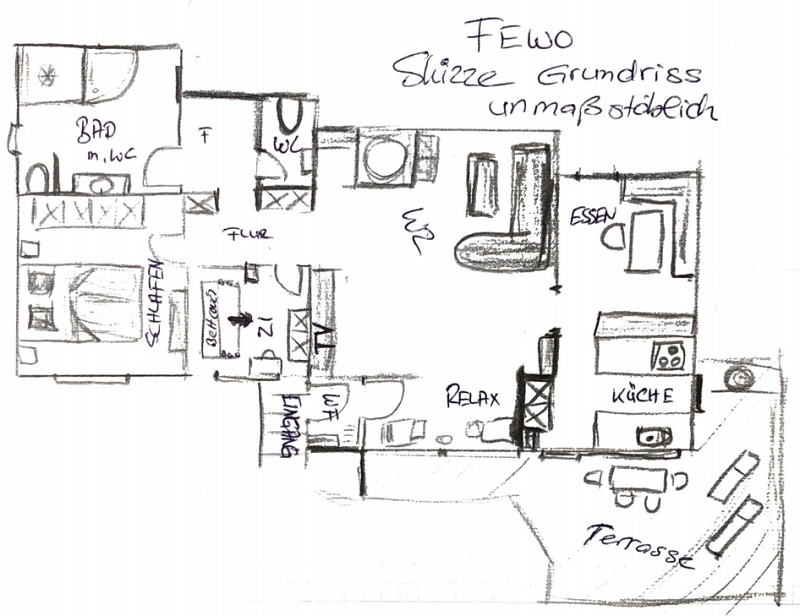 FEWO
Skizze Grundriss
unmaßstäblich
BAD
m. WC
F
WC
ESSEN
FLUR
SCHLAFEN
Bettcouch
ZI
TV
EINGANG
WF
RELAX
KÜCHE
Terrasse